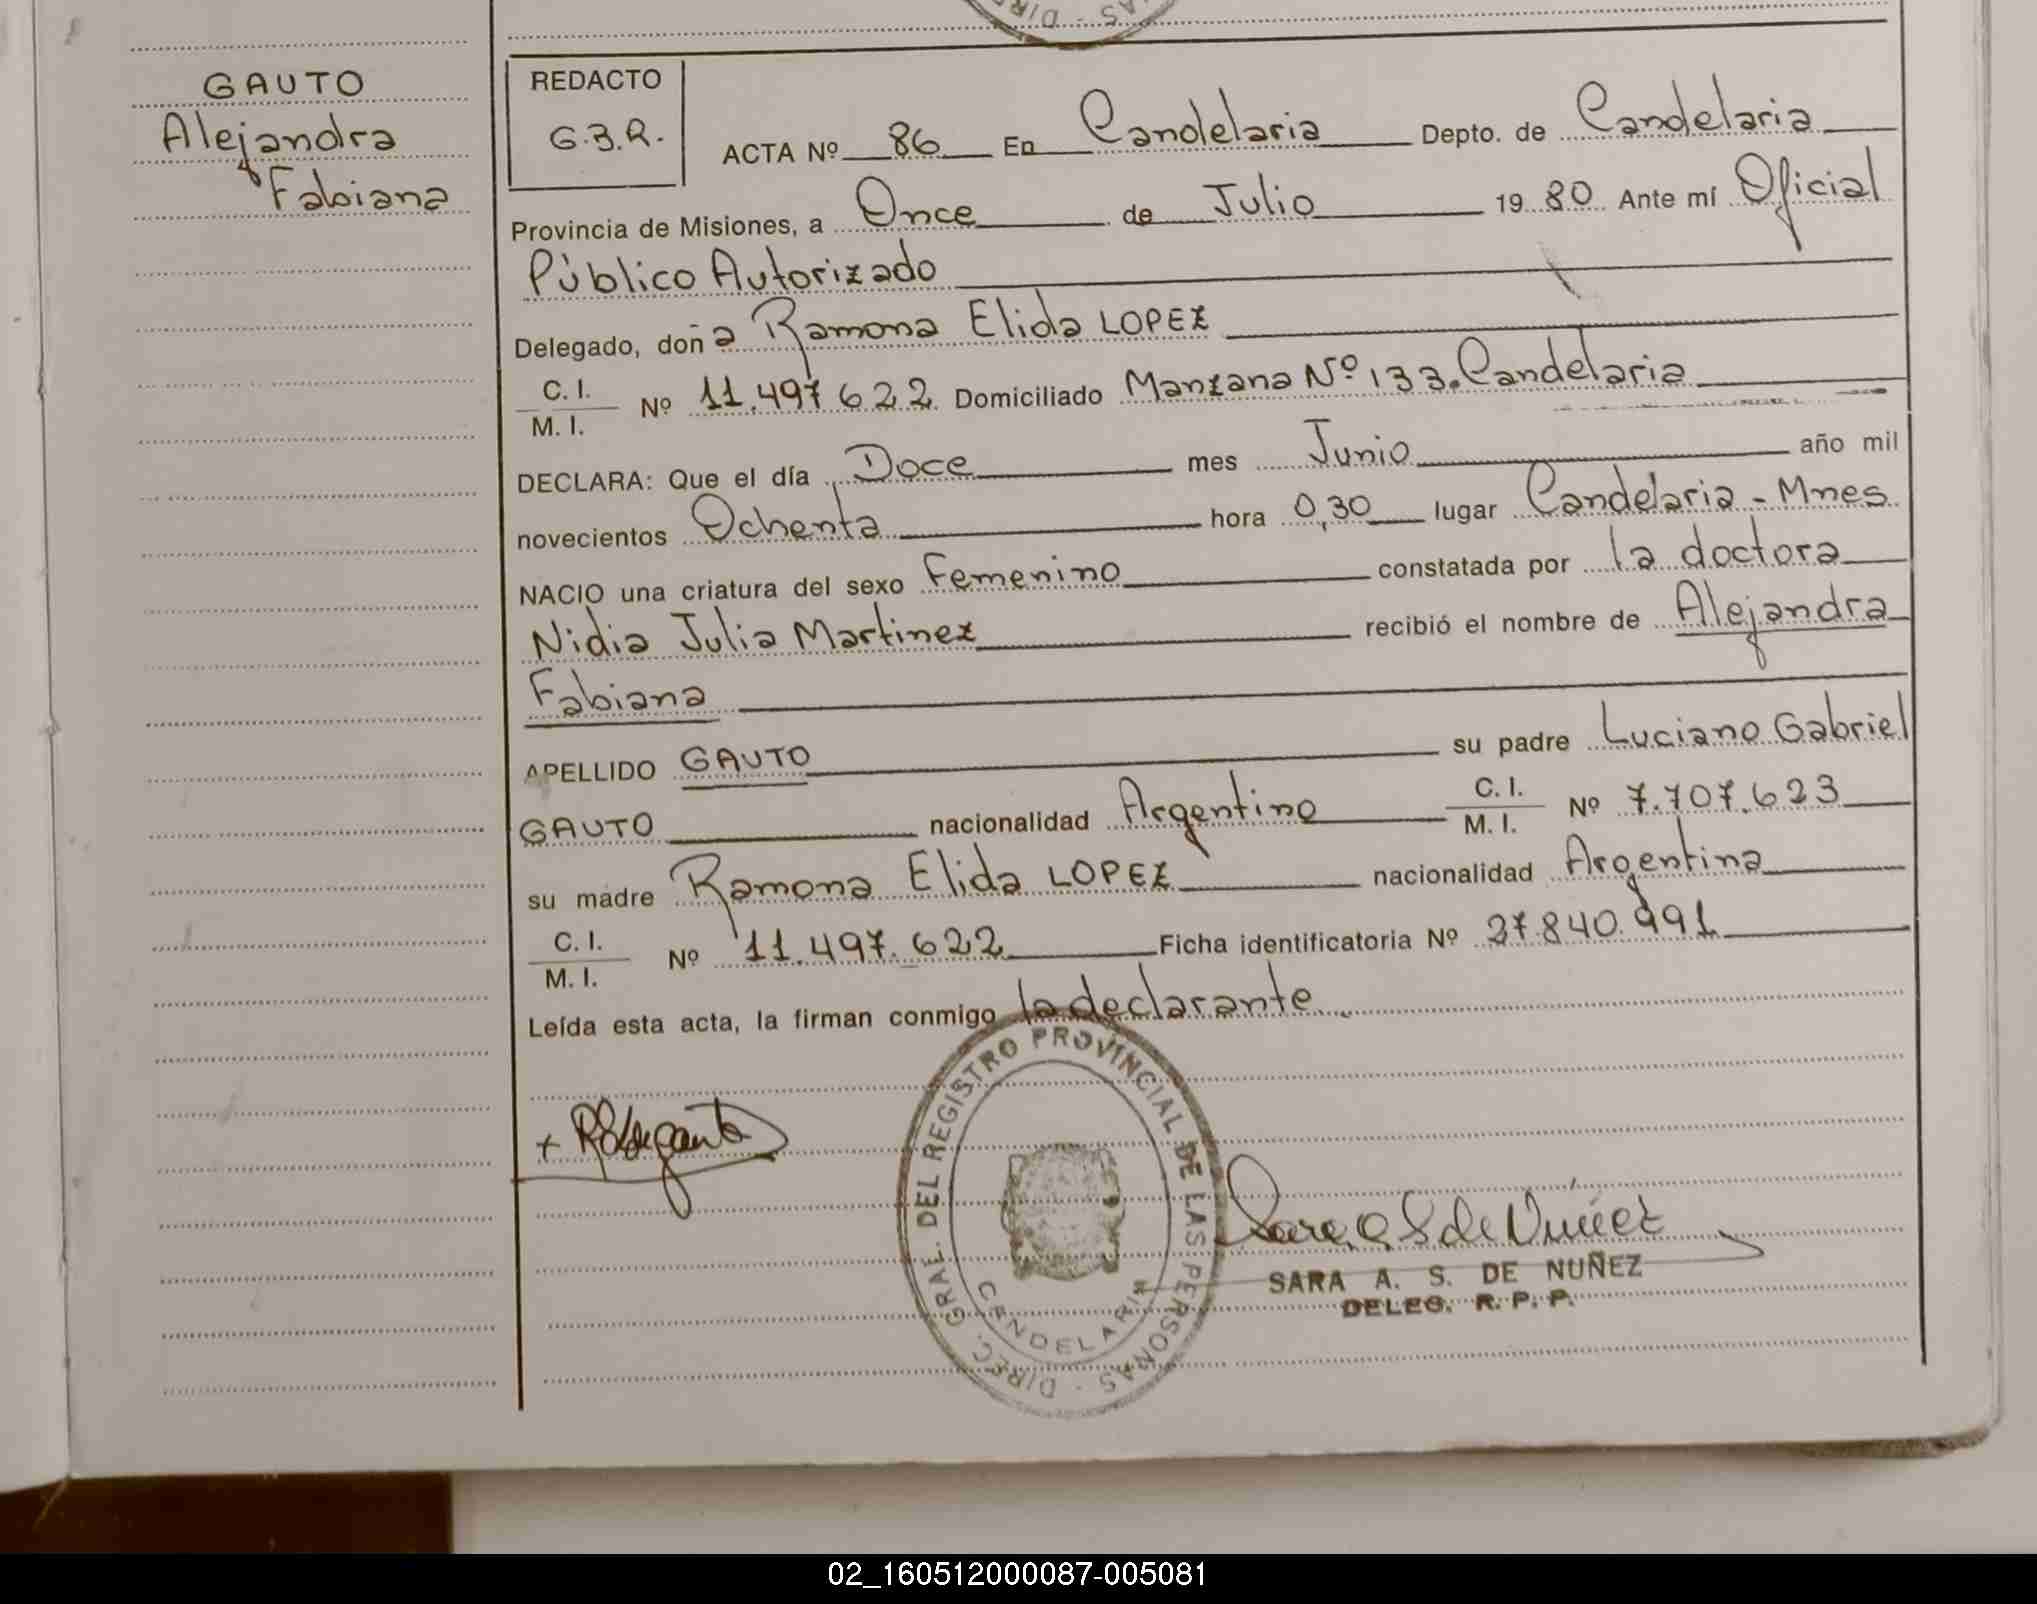 GAUTO
Alejandra
Fabiana
REDACTO
G.B.R.
ACTA Nº 86 En Candelaria Depto. de Candelaria
Provincia de Misiones, a Once de Julio 19 80 Ante mí Oficial
Público Autorizado
Delegado, doña Ramona Elida LOPEZ
C. I.
M. I. Nº 11.497 622 Domiciliado Manzana Nº 133. Candelaria
DECLARA: Que el día Doce mes Junio año mil
novecientos Ochenta hora 0,30 lugar Candelaria - Mnes.
NACIO una criatura del sexo Femenino constatada por la doctora
Nidia Julia Martinez recibió el nombre de Alejandra
Fabiana
APELLIDO GAUTO su padre Luciano Gabriel
GAUTO nacionalidad Argentino C. I. M. I. Nº 7.707.623
su madre Ramona Elida LOPEZ nacionalidad Argentina
C. I.
M. I. Nº 11.497.622 Ficha identificatoria Nº 27.840.991
Leída esta acta, la firman conmigo la declarante
DIREC. GRAE. DEL REGISTRO PROVINCIAL DE LAS PERSONAS -
CANDELARIA
Sara A S de Nuñez
SARA A. S. DE NUÑEZ
DELEG. R. P. P.
02_160512000087-005081